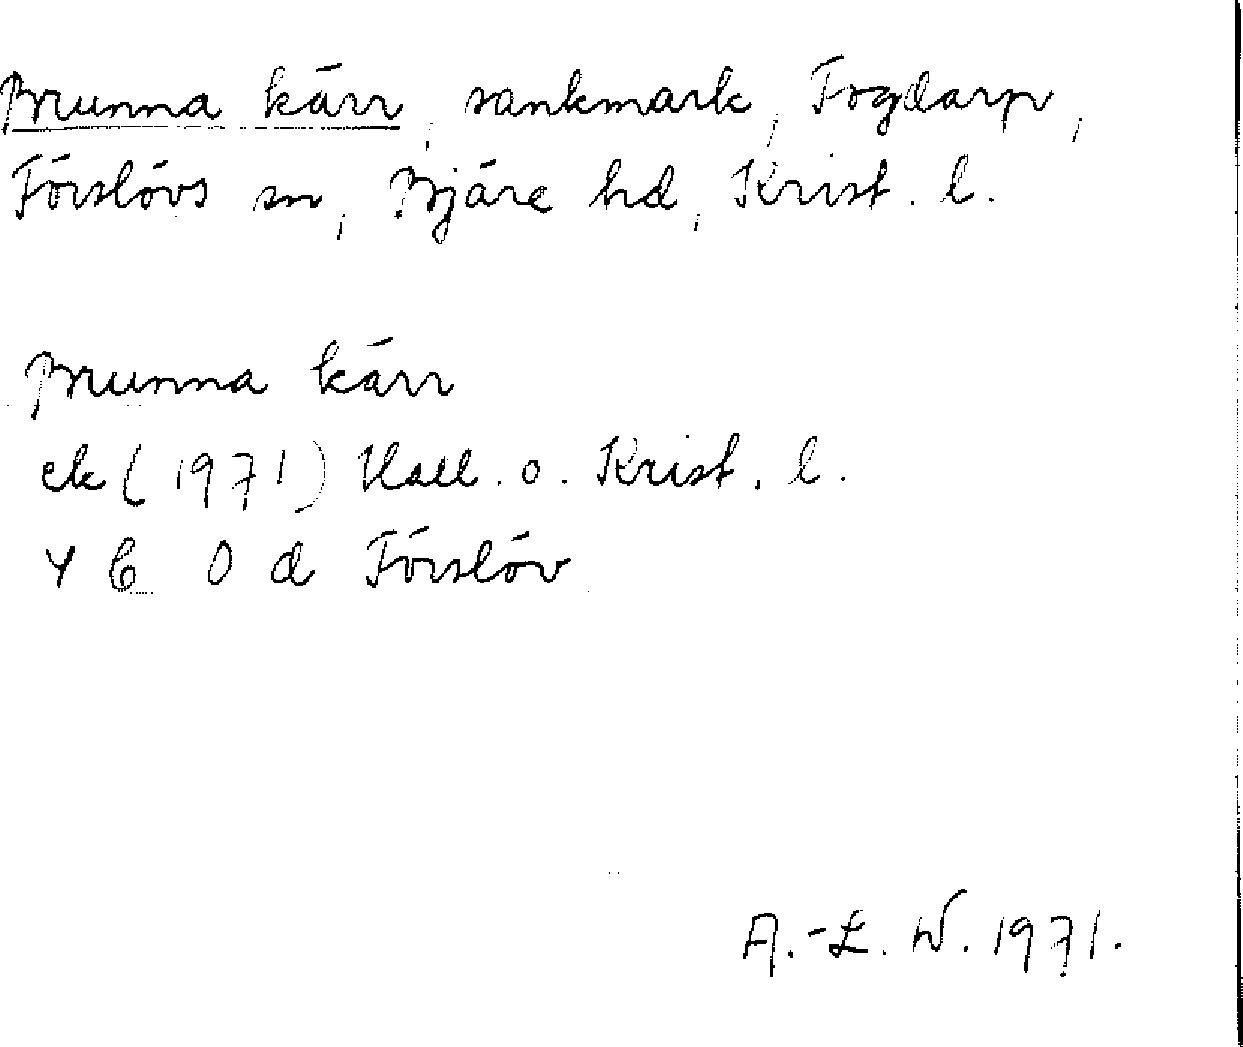 Brunna kärr, sankmark, Fogdarp,
Förslövs sn, Bjäre hd, Krist. l.
Brunna kärr
ek (1971) Hall. o. Krist. l.
4 C 0 d Förslöv
A.-L. W. 1971.